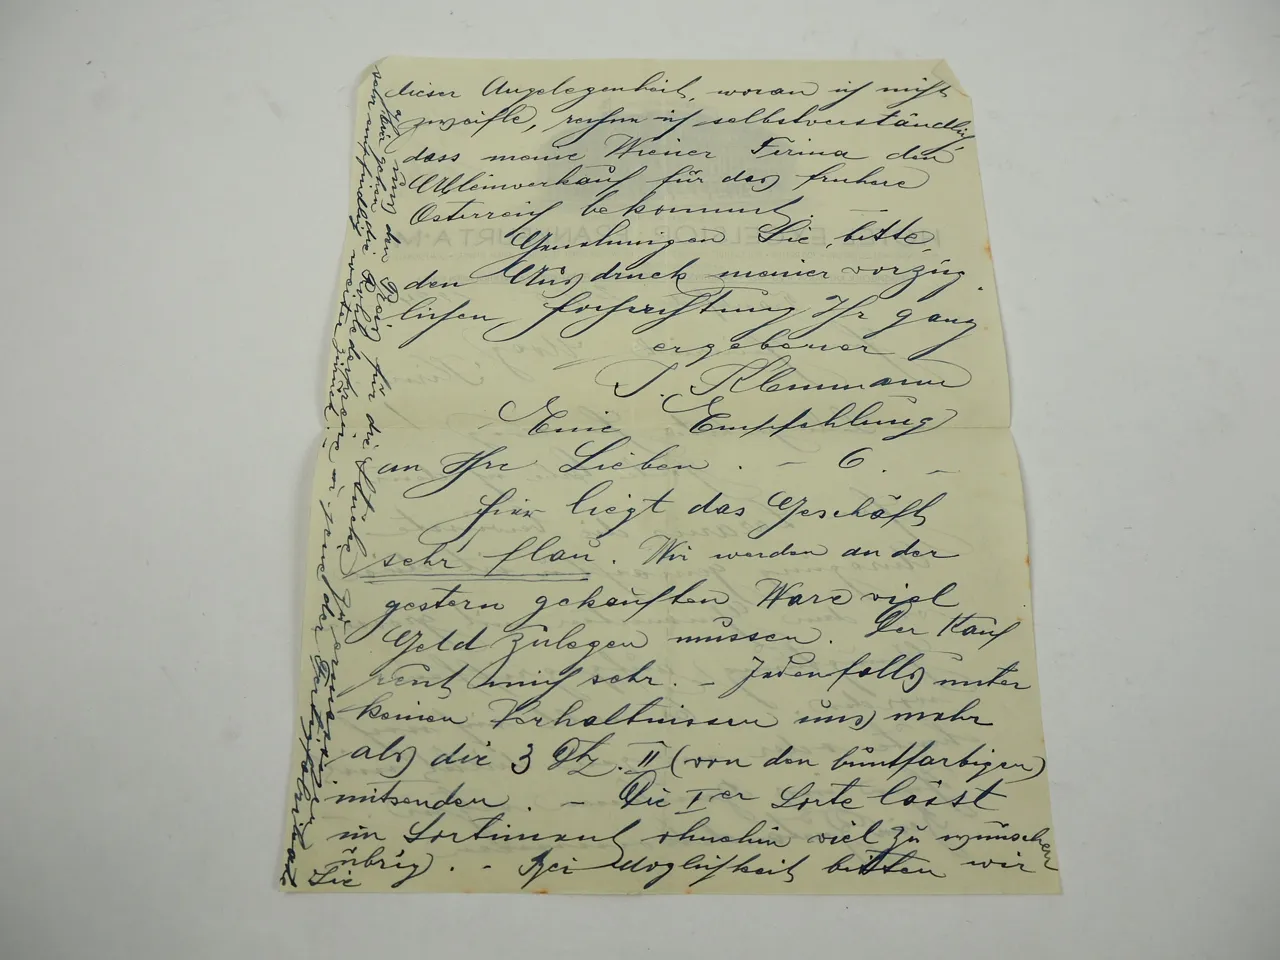 dieser Angelegenheit, woran ich nicht
zweifle, rechne ich selbstverständlich,
dass meine Wiener Firma den
Alleinverkauf für das frühere
Österreich bekommt. —
Genehmigen Sie, bitte,
den Ausdruck meiner vorzüg-
lichen Hochachtung Ihr ganz
ergebener
J. Klemmann
Eine Empfehlung
an Ihre Lieben. – 6. –
Hier liegt das Geschäft
sehr flau. Wir werden an der
gestern gekauften Ware viel
Geld zulegen müssen. Der Kauf
reut mich sehr. – Jedenfalls unter
keinen Verhältnissen uns mehr
als die 3 Dtz. II (von den buntfarbigen)
mitsenden. – Die Ier Sorte lässt
im Sortiment ohnehin viel zu wünschen
übrig. – Bei Möglichkeit bitten wir
Sie
uns den Preis für die Stücke zu ermässigen